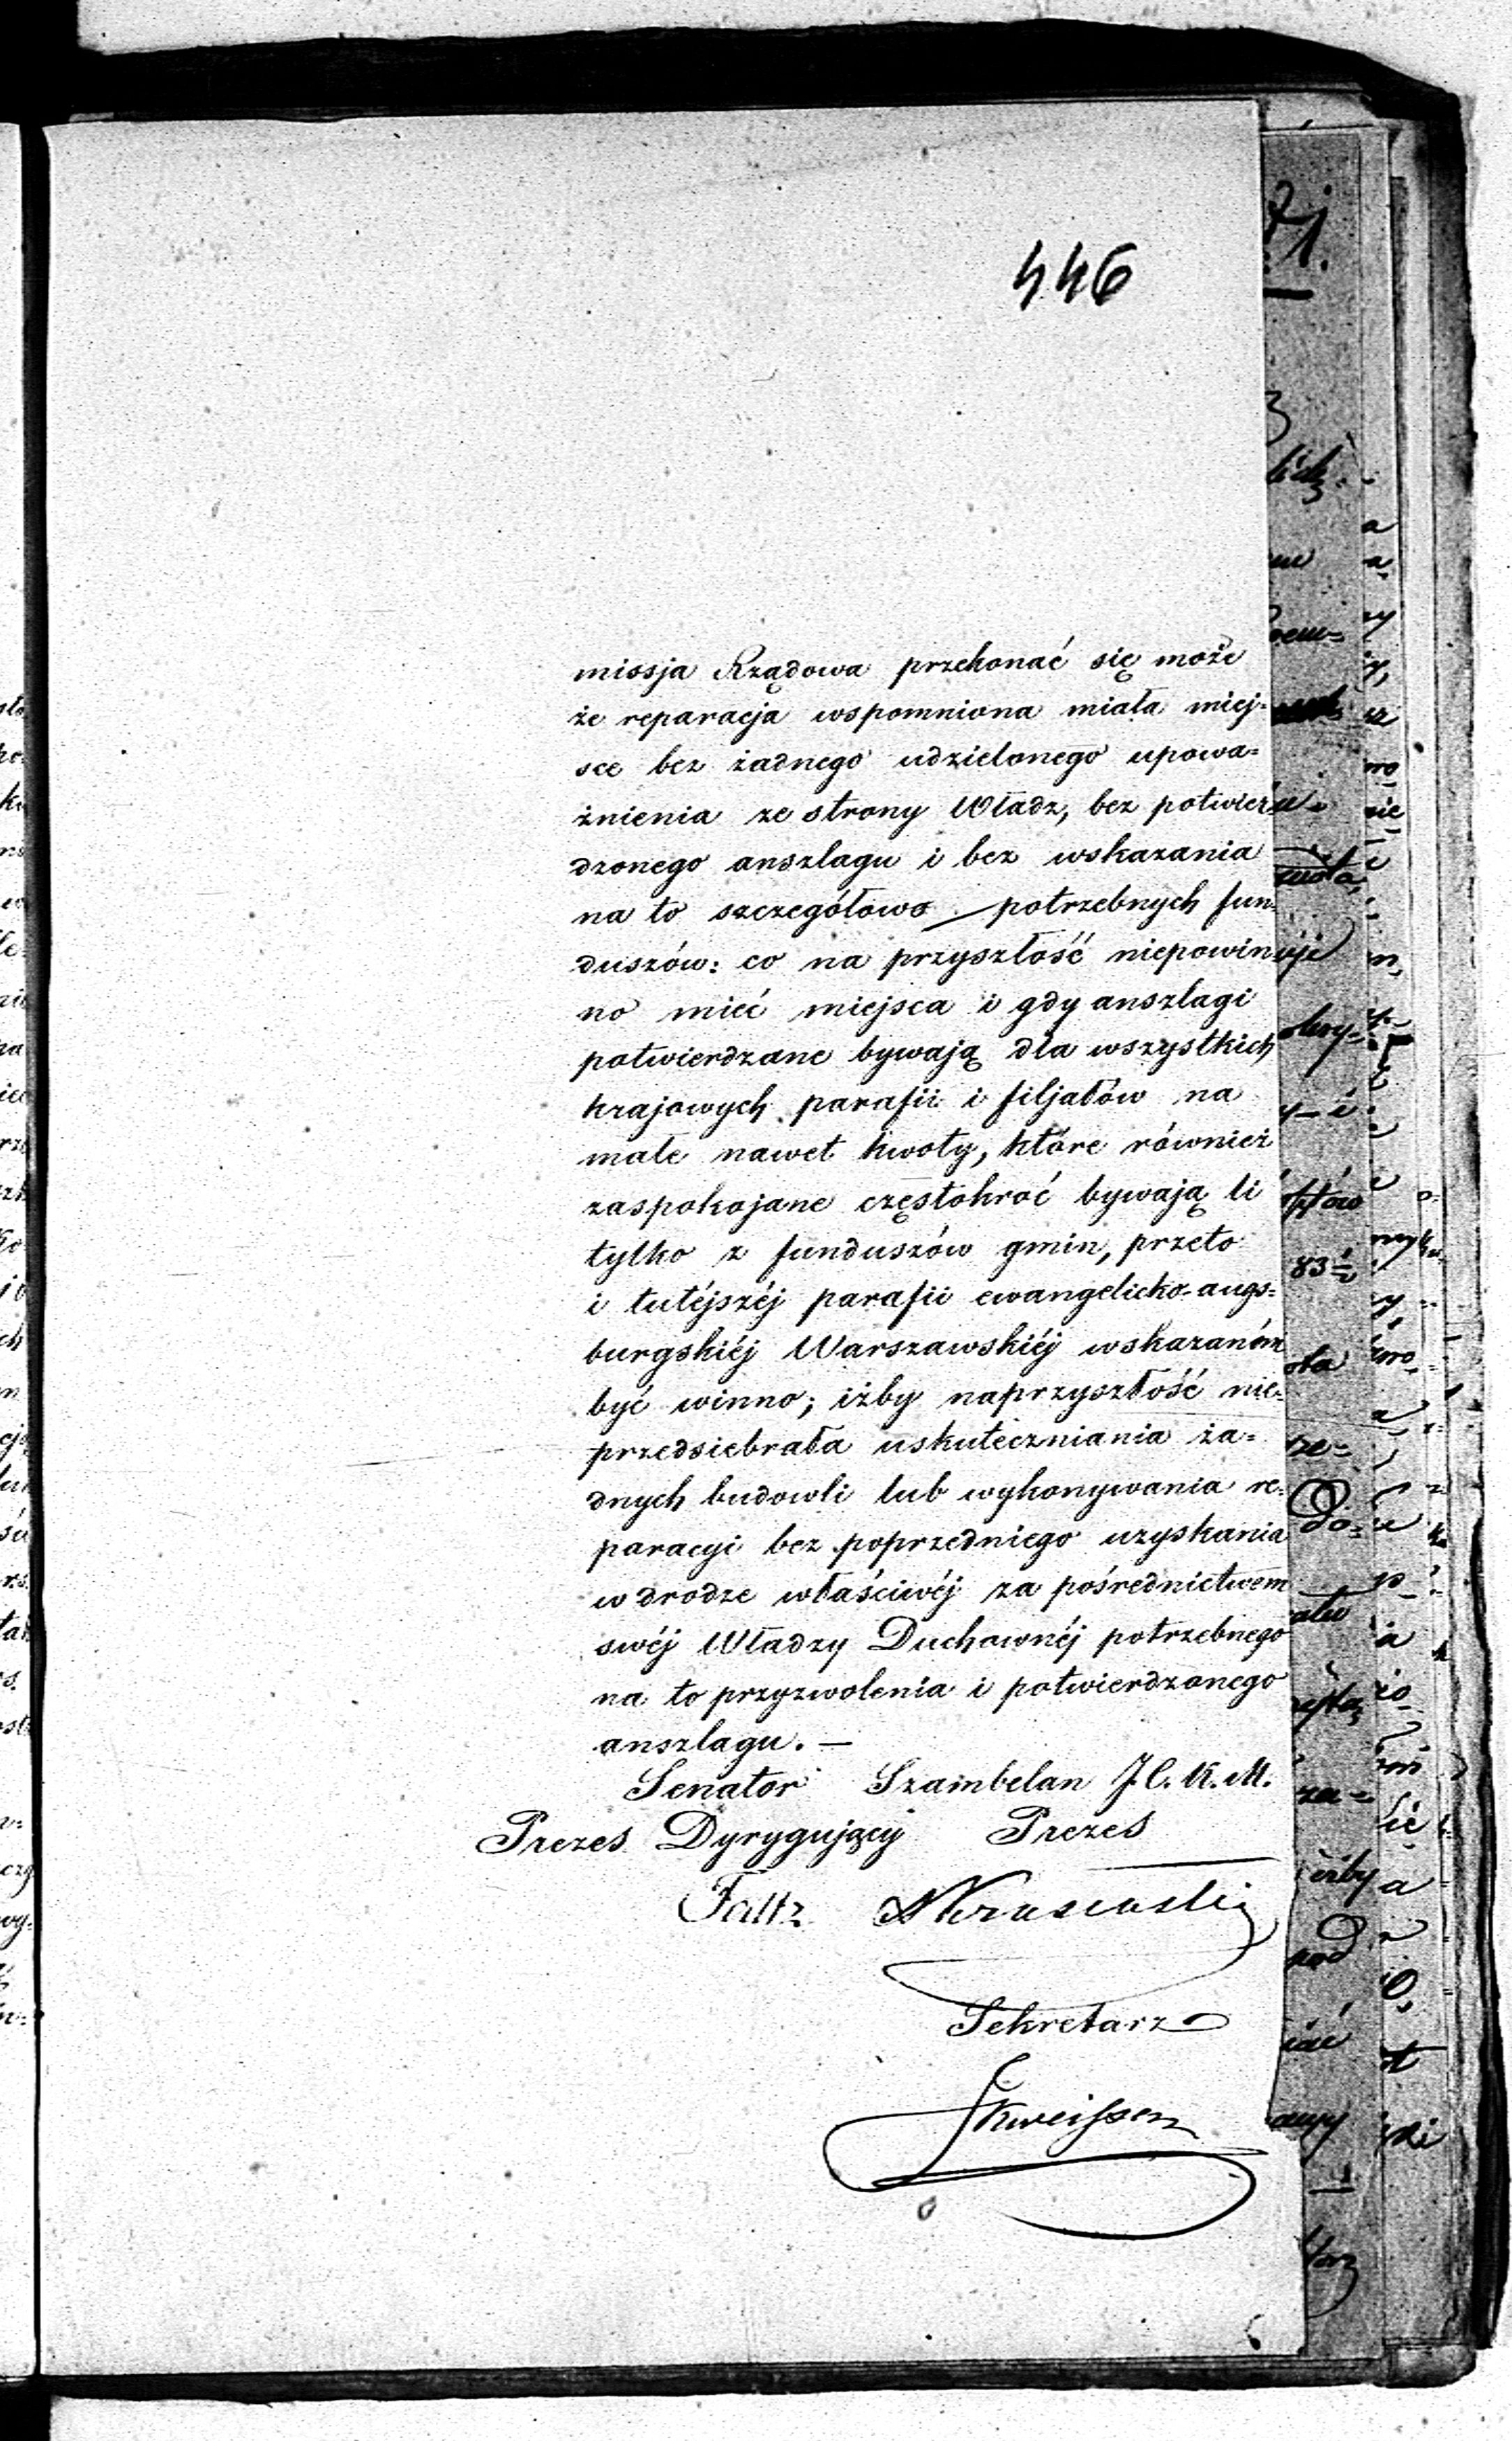 446
missja Rządowa przekonać się może
że reparacja wspomniona miała miej-
sce bez żadnego udzielonego upowa=
żnienia ze strony Władz, bez potwier
dzonego anszlagu i bez wskazania
na to szczegółowo potrzebnych fun-
duszów: co na przyszłość niepowin
no mieć miejsca i gdy anszlagi
potwierdzane bywają dla wszystkich
krajowych parafii i filjałów na
małe nawet kwoty, które również
zaspokojane częstokroć bywają li
tylko z funduszów gmin, przeto
i tutéjszéj parafii ewangelicko-augs=
burgskiéj Warszawskiéj wskazaném
być winno; iżby naprzyszłość nie-
przedsiebrała uskuteczniania ża=
dnych budowli lub wykonywania re-
paracyi bez poprzedniego uzyskania
w drodze właściwéj za pośrednictwem
swéj Władzy Duchownéj potrzebnego
na to przyzwolenia i potwierdzonego
anszlagu. —
Senator Szambelan J. C. K. M.
Prezes Dyrygujący Prezes
Faltz
Sekretarz